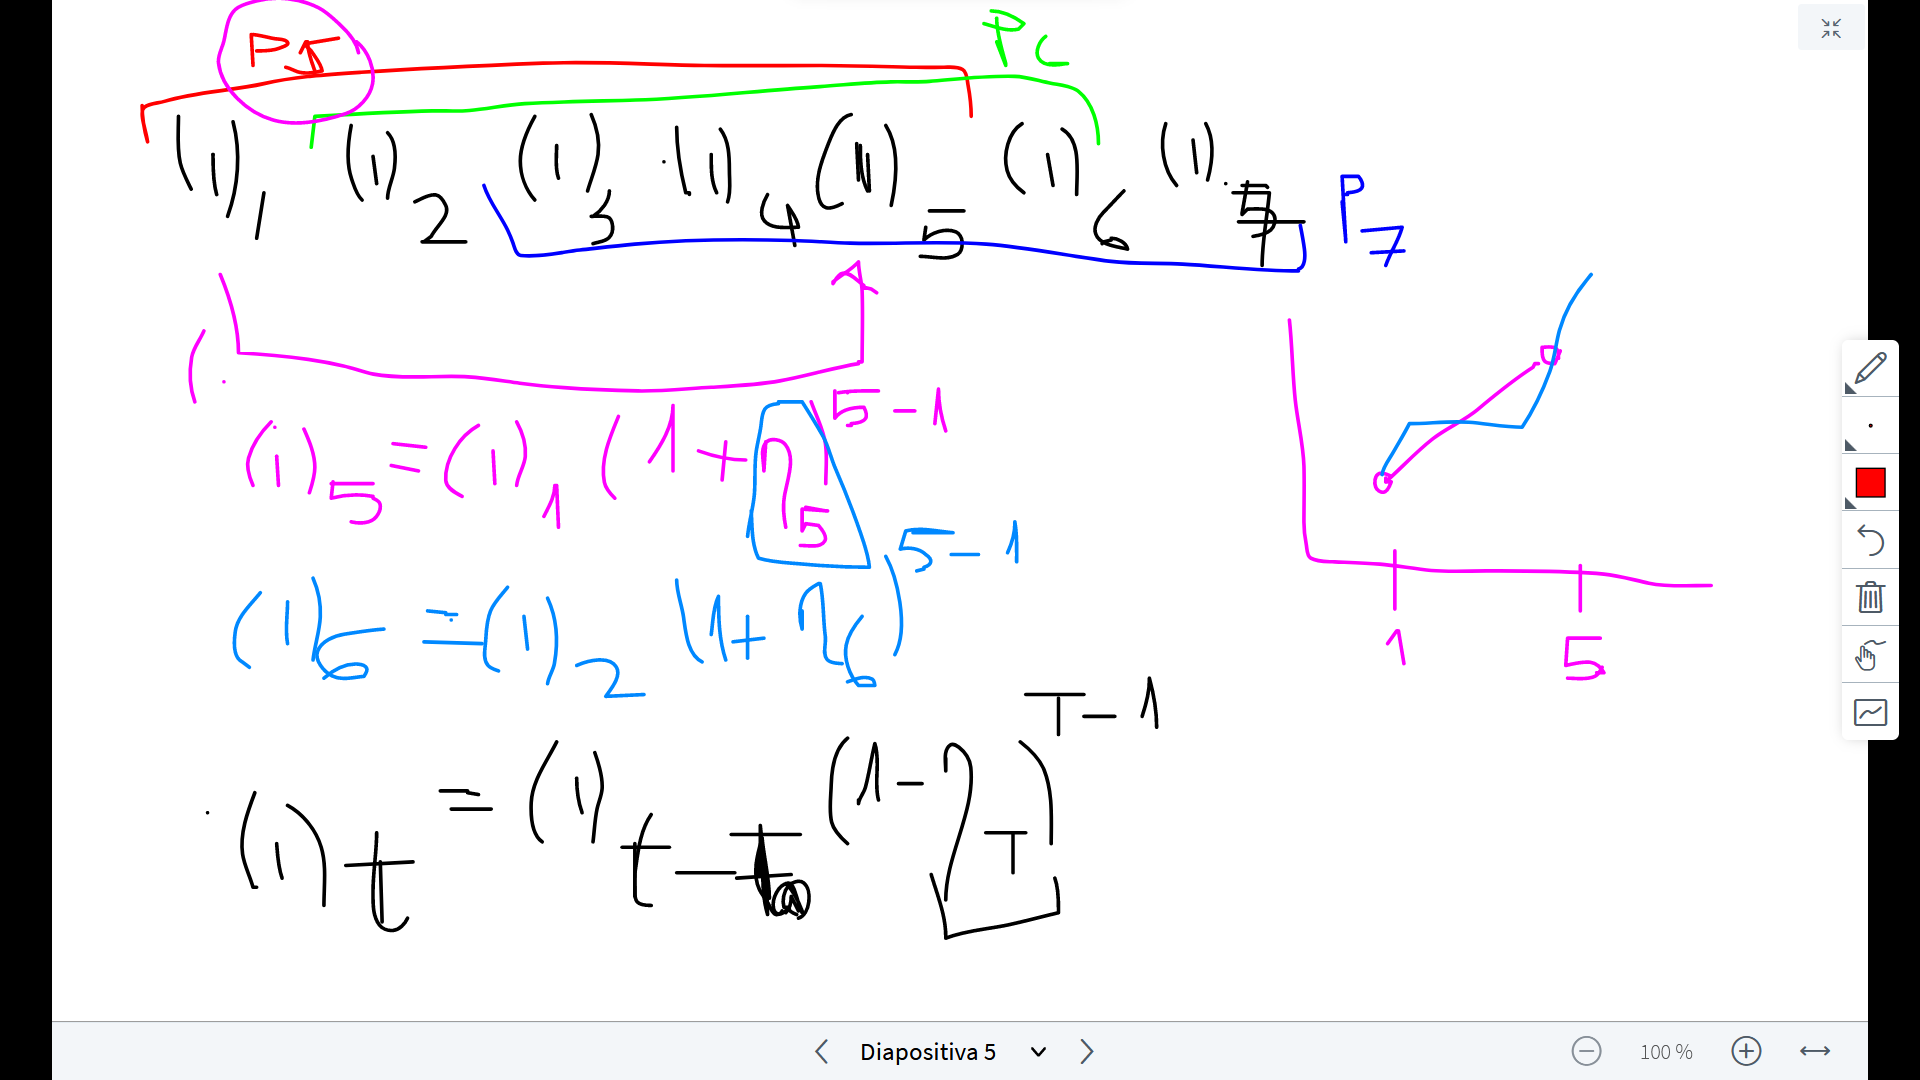 P5 Pc
(1)1 (1)2 (1)3 (1)4 (1)5 (1)6 (1)7 P7
(1)5 = (1)1 (1+η5)^5-1
(1)6 = (1)2 (1+η6)^5-1
1 5
(1)t = (1)t- (1-ηT)^T-1
Diapositiva 5
100 %